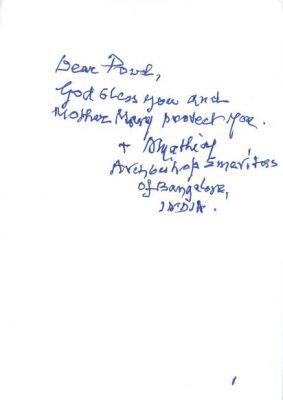 Dear
God bless you and
Mother Mary protect you.
+ A Mathias
Archbishop Emeritus
Of Bangalore,
INDIA.